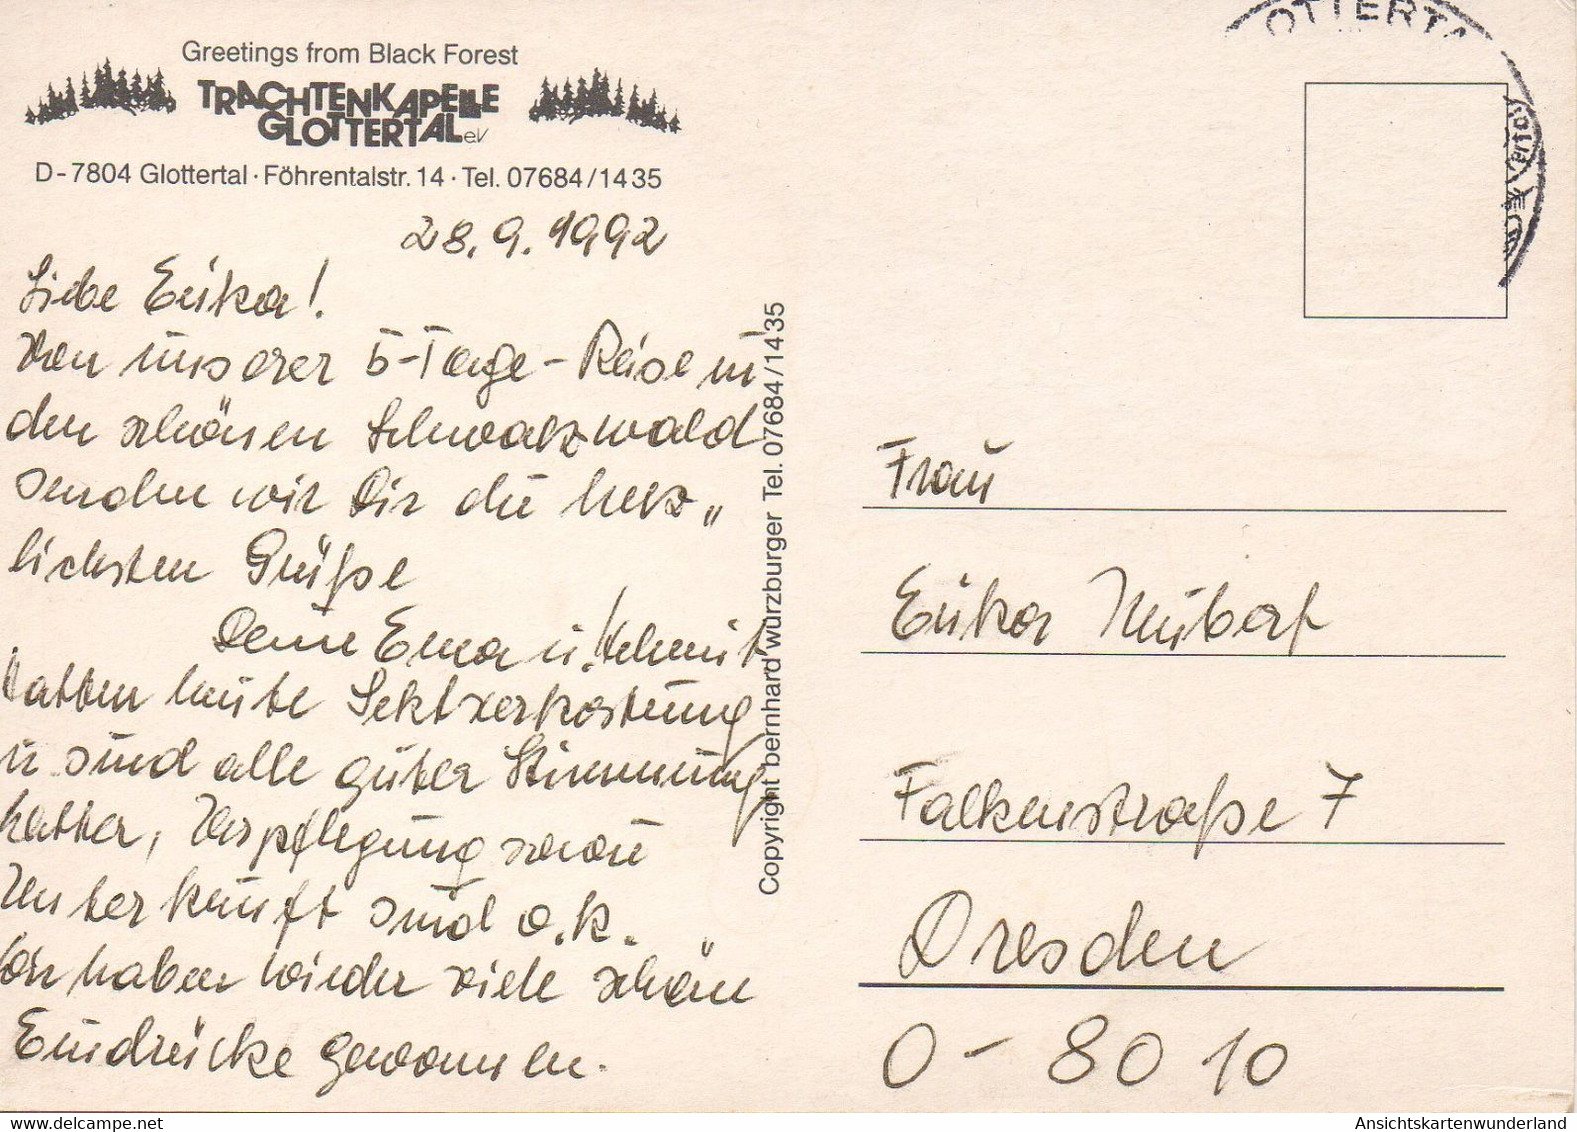 Greetings from Black Forest
TRACHTENKAPELLE
GLOTTERTAL eV
D-7804 Glottertal · Föhrentalstr. 14 · Tel. 07684/1435
28.9.1992
Liebe Erika!
Von unserer 5-Tage-Reise in
den schönen Schwarzwald
senden wir Dir die herz„
lichsten Grüße
Deine Erna u. Helmut
hatten heute Sektverkostung
u. sind alle guter Stimmung
Wetter, Verpflegung sowie
Unterkunft sind o.k.
Wir haben wieder viele schöne
Eindrücke gewonnen.
Copyright bernhard würzburger Tel. 07684/1435
OTTERTA
Frau
Erika
Falkenstraße 7
Dresden
O-8010
AnsichtsKartenwunderland